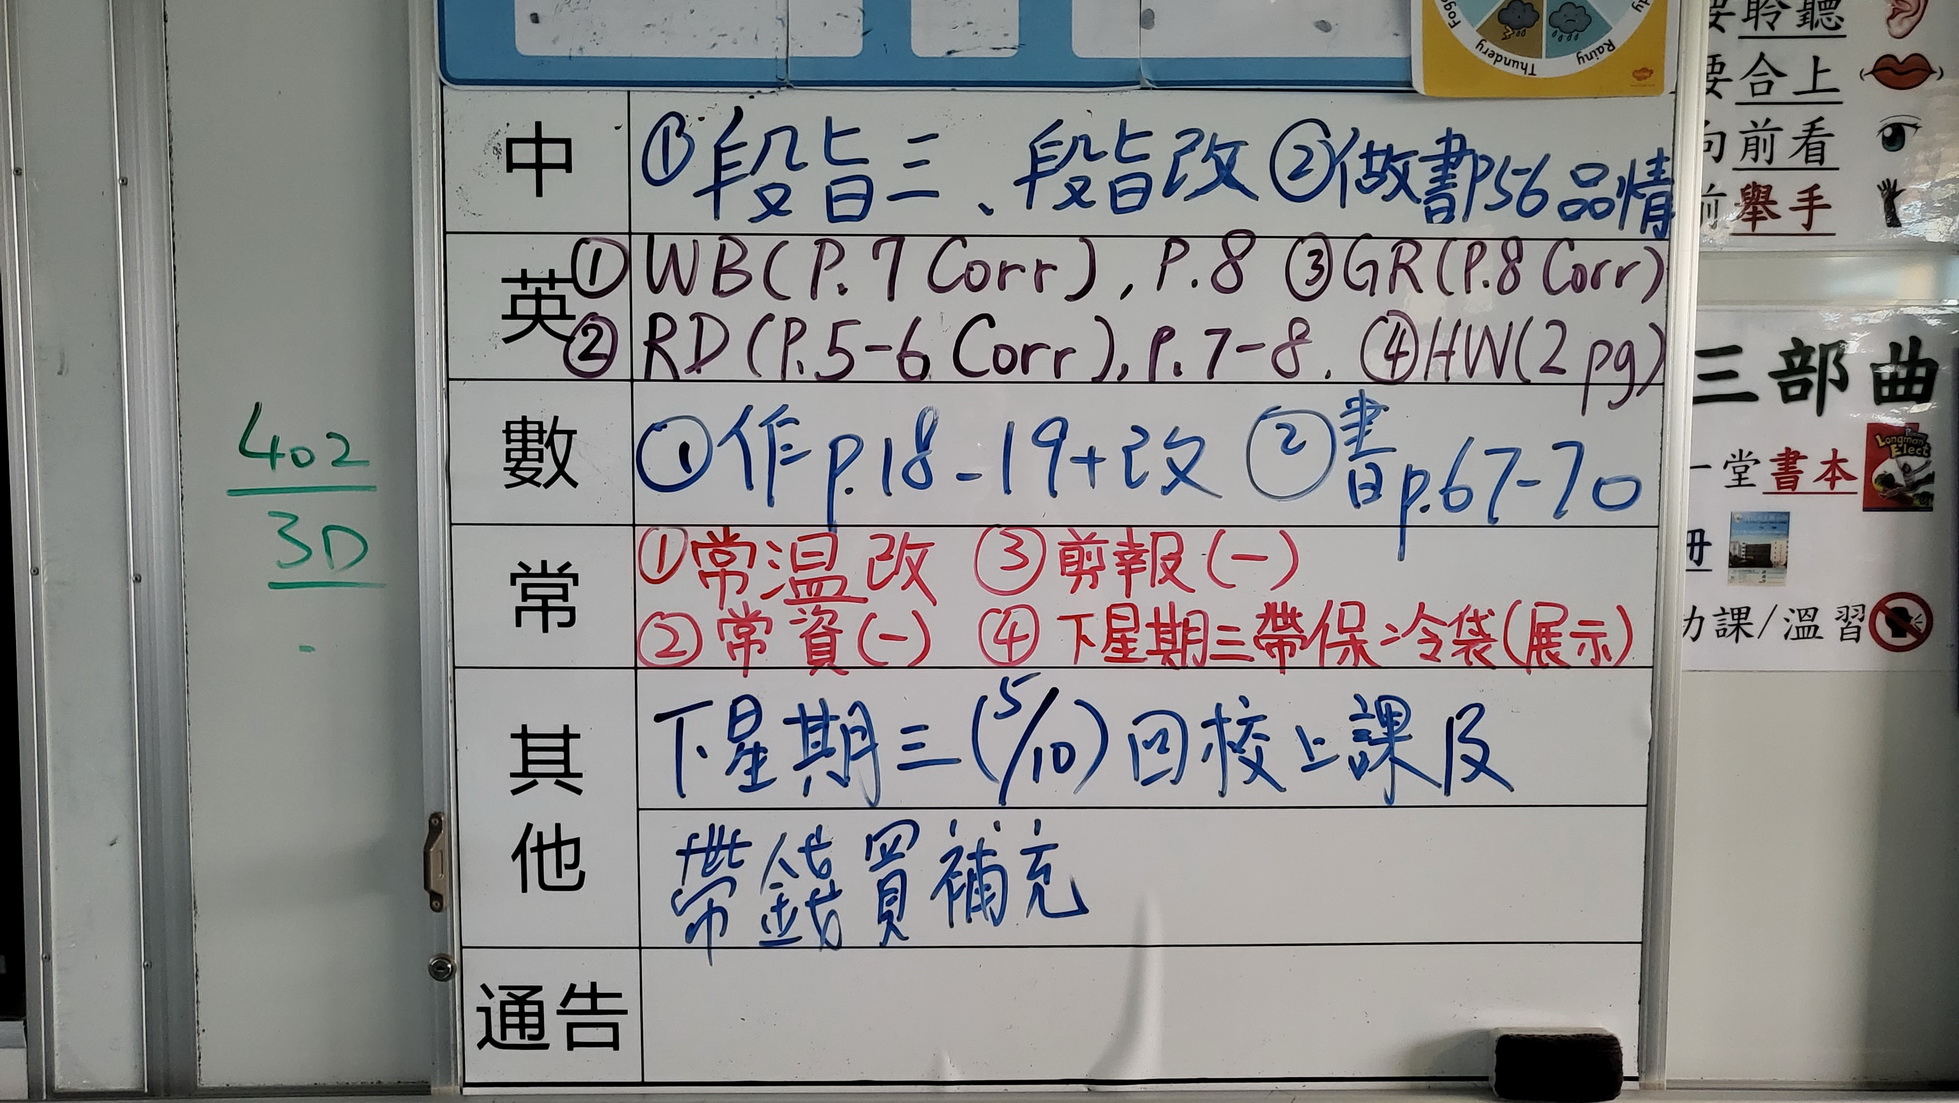 Foggy
Thundery
Rainy
中
①段旨三、段旨改 ②做書P.5-6品情
英
①WB(P.7 Corr), P.8 ③GR(P.8 Corr)
②RD(P.5-6 Corr), P.7-8. ④HW(2 pg)
數
①作p.18-19+改 ②書p.67-70
常
①常溫改 ③剪報(一)
②常資(一) ④下星期三帶保冷袋(展示)
其他
下星期三(5/10)回校上課及
帶錢買補充
通告
402
3D
要聆聽
要合上
向前看
前舉手
三部曲
一堂書本
Longman Elect
冊
功課/溫習